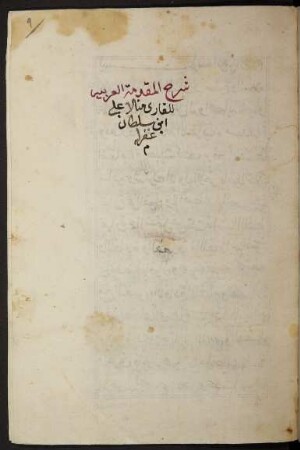 ٩
شرح المقدمة العربيه
للقارى منلا على
ابن سلطان
غفر له
م